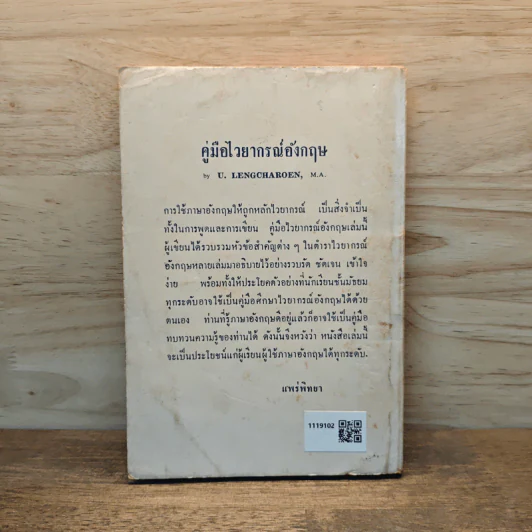 คู่มือไวยากรณ์อังกฤษ
by U. LENGCHAROEN, M.A.
การใช้ภาษาอังกฤษให้ถูกหลักไวยากรณ์ เป็นสิ่งจำเป็น
ทั้งในการพูดและการเขียน คู่มือไวยากรณ์อังกฤษเล่มนี้
ผู้เขียนได้รวบรวมหัวข้อสำคัญต่าง ๆ ในตำราไวยากรณ์
อังกฤษหลายเล่มมาอธิบายไว้อย่างรวบรัด ชัดเจน เข้าใจ
ง่าย พร้อมทั้งให้ประโยคตัวอย่างที่นักเรียนชั้นมัธยม
ทุกระดับอาจใช้เป็นคู่มือศึกษาไวยากรณ์อังกฤษได้ด้วย
ตนเอง ท่านที่รู้ภาษาอังกฤษดีอยู่แล้วก็อาจใช้เป็นคู่มือ
ทบทวนความรู้ของท่านได้ ดังนั้นจึงหวังว่า หนังสือเล่มนี้
จะเป็นประโยชน์แก่ผู้เรียนผู้ใช้ภาษาอังกฤษได้ทุกระดับ.
แพร่พิทยา
1119102